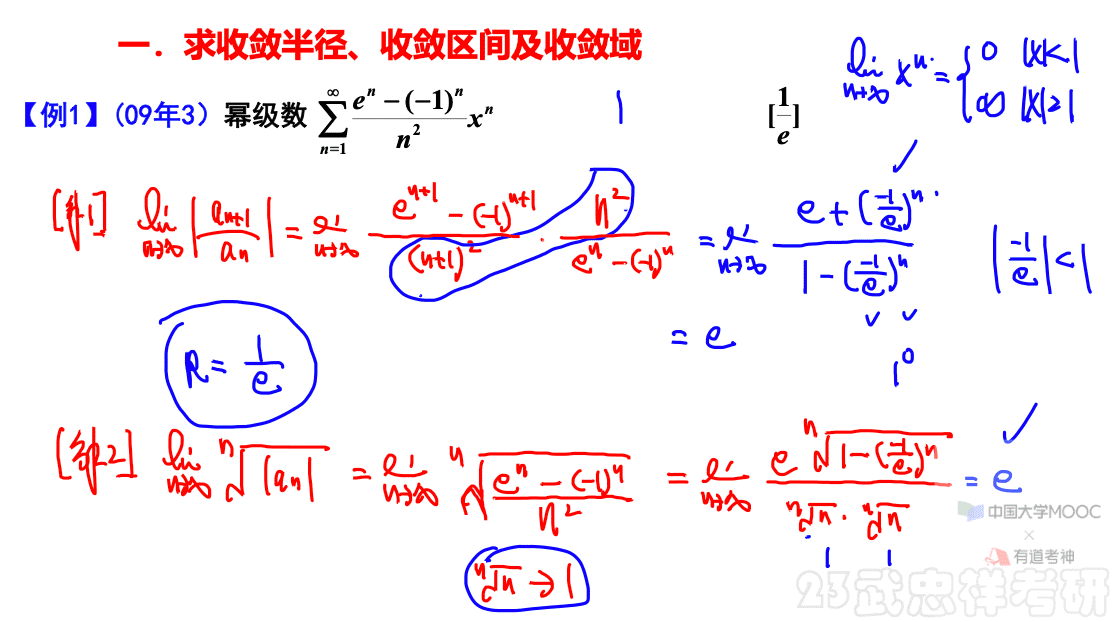 一．求收敛半径、收敛区间及收敛域
【例1】（09年3）幂级数 $\sum_{n=1}^{\infty}\frac{e^n-(-1)^n}{n^2}x^n$ 1 $[\frac{1}{e}]$
$\lim_{n\to\infty} x^n = \begin{cases} 0 & |x|<1 \\ \infty & |x|>1 \end{cases}$
[解1] $\lim_{n\to\infty}\left|\frac{a_{n+1}}{a_n}\right| = \lim_{n\to\infty}\frac{e^{n+1}-(-1)^{n+1}}{(n+1)^2}\cdot\frac{n^2}{e^n-(-1)^n} = \lim_{n\to\infty}\frac{e+(\frac{-1}{e})^n}{1-(\frac{-1}{e})^n}$ $\left|\frac{-1}{e}\right|<1$
$= e$
$R=\frac{1}{e}$
[解2] $\lim_{n\to\infty}\sqrt[n]{|a_n|} = \lim_{n\to\infty}\sqrt[n]{\frac{e^n-(-1)^n}{n^2}} = \lim_{n\to\infty}\frac{e\sqrt[n]{1-(\frac{-1}{e})^n}}{\sqrt[n]{n}\cdot\sqrt[n]{n}} = e$
1 1
$1^0$
$\sqrt[n]{n}\to 1$
中国大学MOOC
×
有道考神
23武忠祥考研